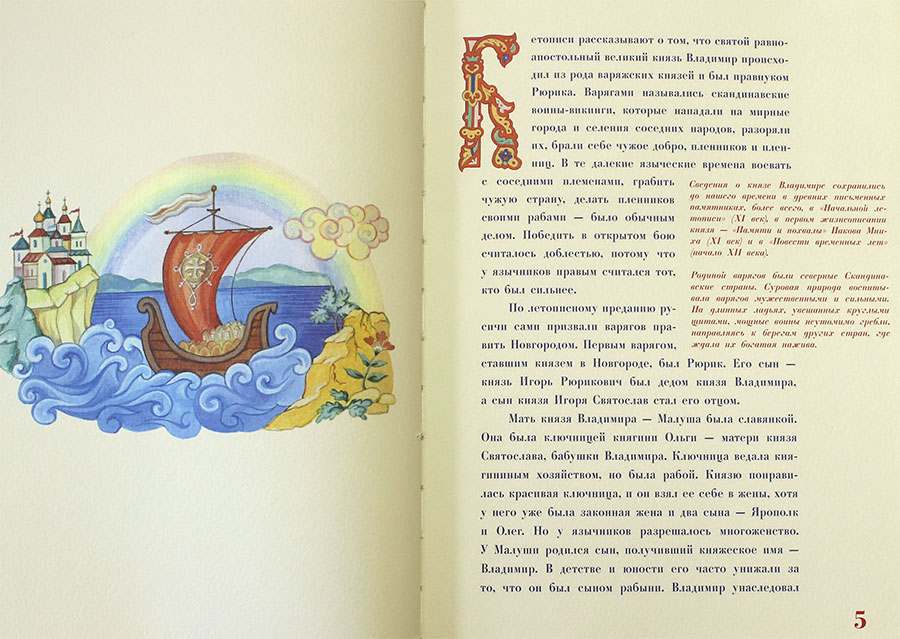 Летописи рассказывают о том, что святой равно-
апостольный великий князь Владимир происхо-
дил из рода варяжских князей и был правнуком
Рюрика. Варягами назывались скандинавские
воины-викинги, которые нападали на мирные
города и селения соседних народов, разоряли
их, брали себе чужое добро, пленников и плен-
ниц. В те далекие языческие времена воевать
с соседними племенами, грабить
чужую страну, делать пленников
своими рабами — было обычным
делом. Победить в открытом бою
считалось доблестью, потому что
у язычников правым считался тот,
кто был сильнее.
По летописному преданию ру-
сичи сами призвали варягов пра-
вить Новгородом. Первым варягом,
ставшим князем в Новгороде, был Рюрик. Его сын —
князь Игорь Рюрикович был дедом князя Владимира,
а сын князя Игоря Святослав стал его отцом.
Мать князя Владимира — Малуша была славянкой.
Она была ключницей княгини Ольги — матери князя
Святослава, бабушки Владимира. Ключница ведала кня-
гининым хозяйством, но была рабой. Князю понрави-
лась красивая ключница, и он взял ее себе в жены, хотя
у него уже была законная жена и два сына — Ярополк
и Олег. Но у язычников разрешалось многоженство.
У Малуши родился сын, получивший княжеское имя —
Владимир. В детстве и юности его часто унижали за
то, что он был сыном рабыни. Владимир унаследовал
Сведения о князе Владимире сохранились
до нашего времени в древних письменных
памятниках, более всего, в «Начальной ле-
тописи» (XI век), в первом жизнеописании
князя — «Памяти и похвалы» Иакова Мни-
ха (XI век) и в «Повести временных лет»
(начало XII века).
Родиной варягов были северные Скандина-
вские страны. Суровая природа воспиты-
вала варягов мужественными и сильными.
На длинных ладьях, увешанных круглыми
щитами, мощные воины неутомимо гребли,
направляясь к берегам других стран, где
ждала их богатая нажива.
5